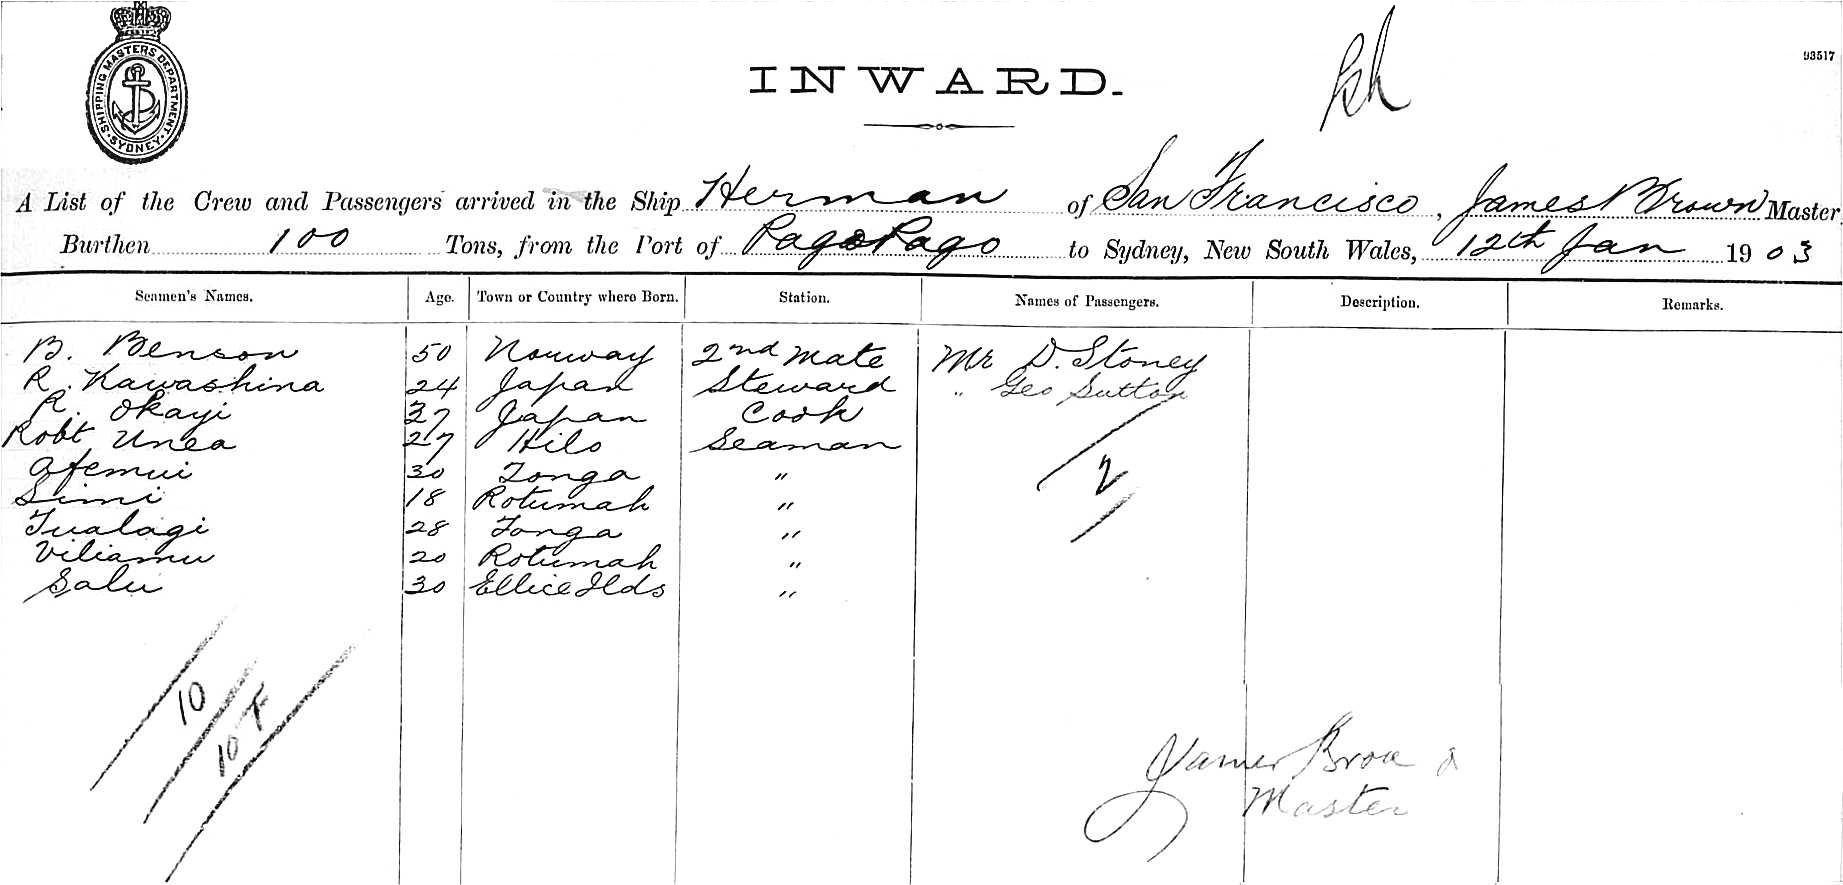 SHIPPING MASTERS DEPARTMENT · SYDNEY ·
INWARD.
93517
A List of the Crew and Passengers arrived in the Ship Herman of San Francisco, James Brown Master,
Burthen 100 Tons, from the Port of Pago Pago to Sydney, New South Wales, 12th Jan 1903
Seamen's Names. Age. Town or Country where Born. Station. Names of Passengers. Description. Remarks.
B. Benson 50 Norway 2nd Mate Mr D. Stoney
R. Kawashina 24 Japan Steward " Geo Sutton
R. Okayi 37 Japan Cook
Robt Unea 27 Hilo Seaman
Afemui 30 Tonga "
Simi 18 Rotumah "
Tualagi 28 Tonga "
Viliamu 20 Rotumah "
Salu 30 Ellice Ilds "
2
10
10 F
James Brown
Master